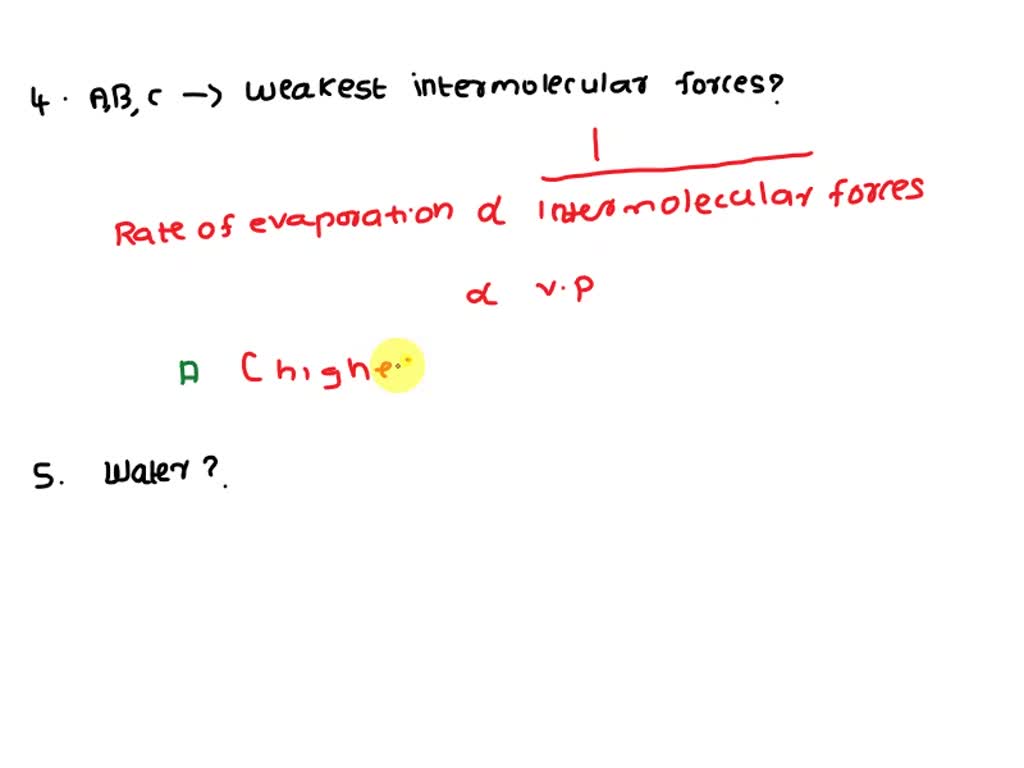 4. A,B,C → weakest intermolecular forces?
1
Rate of evaporation α intermolecular forces
α v.p
A (highe
5. Water?